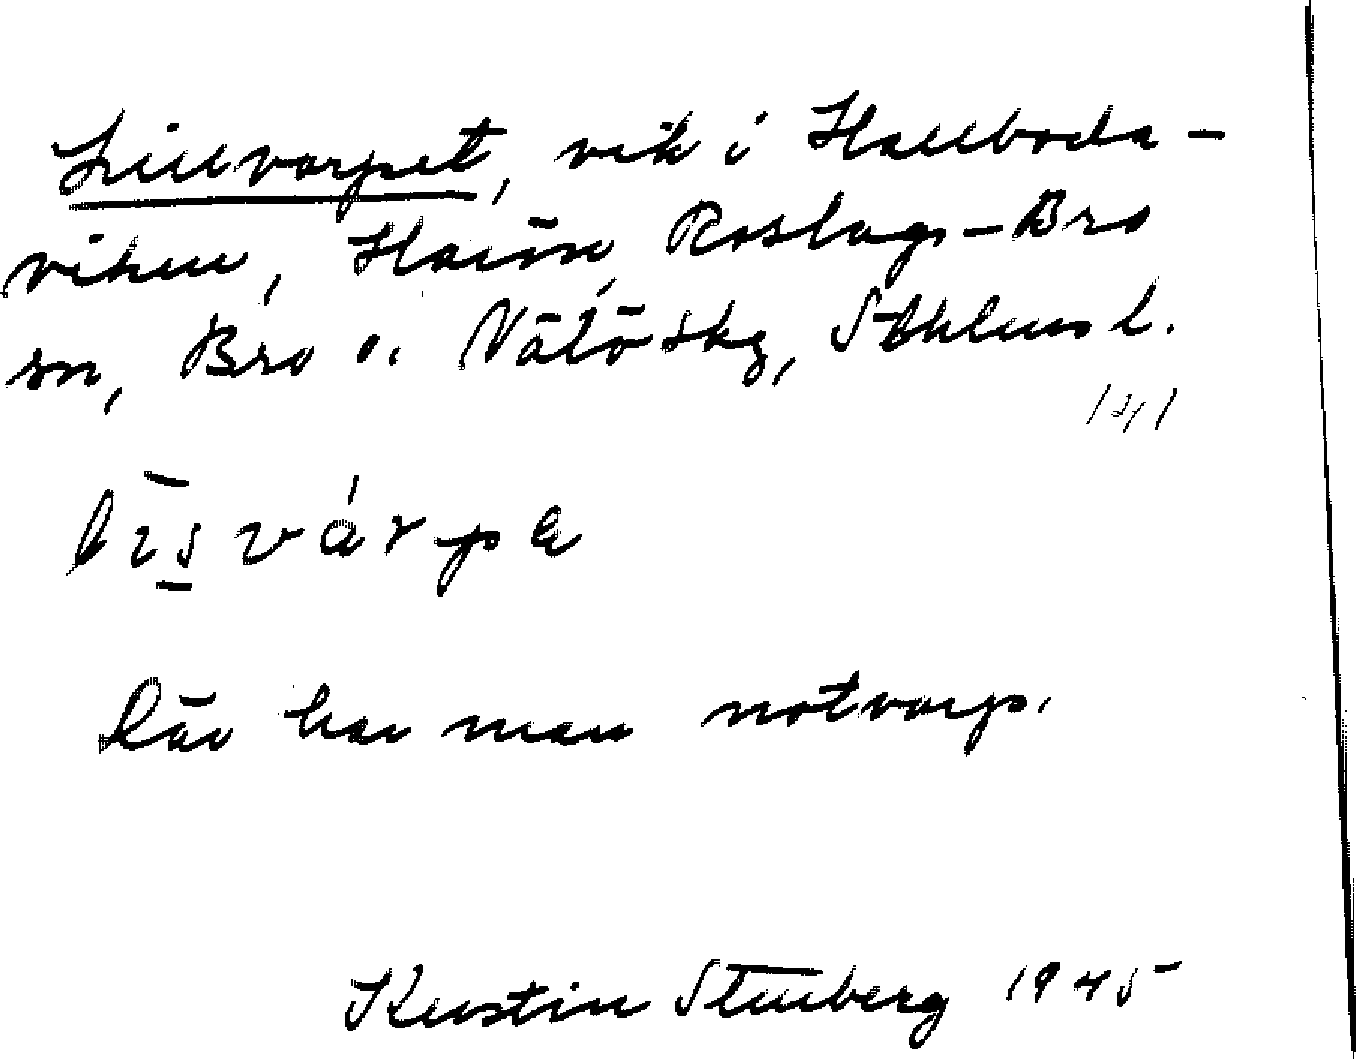 Lillvarpet, vik i Hallboda-
viken, Roslags-Bro
sn, Bro o. Vätö skg, Sthlms l.
Där har man notvarp.
Kerstin Stenberg 1945